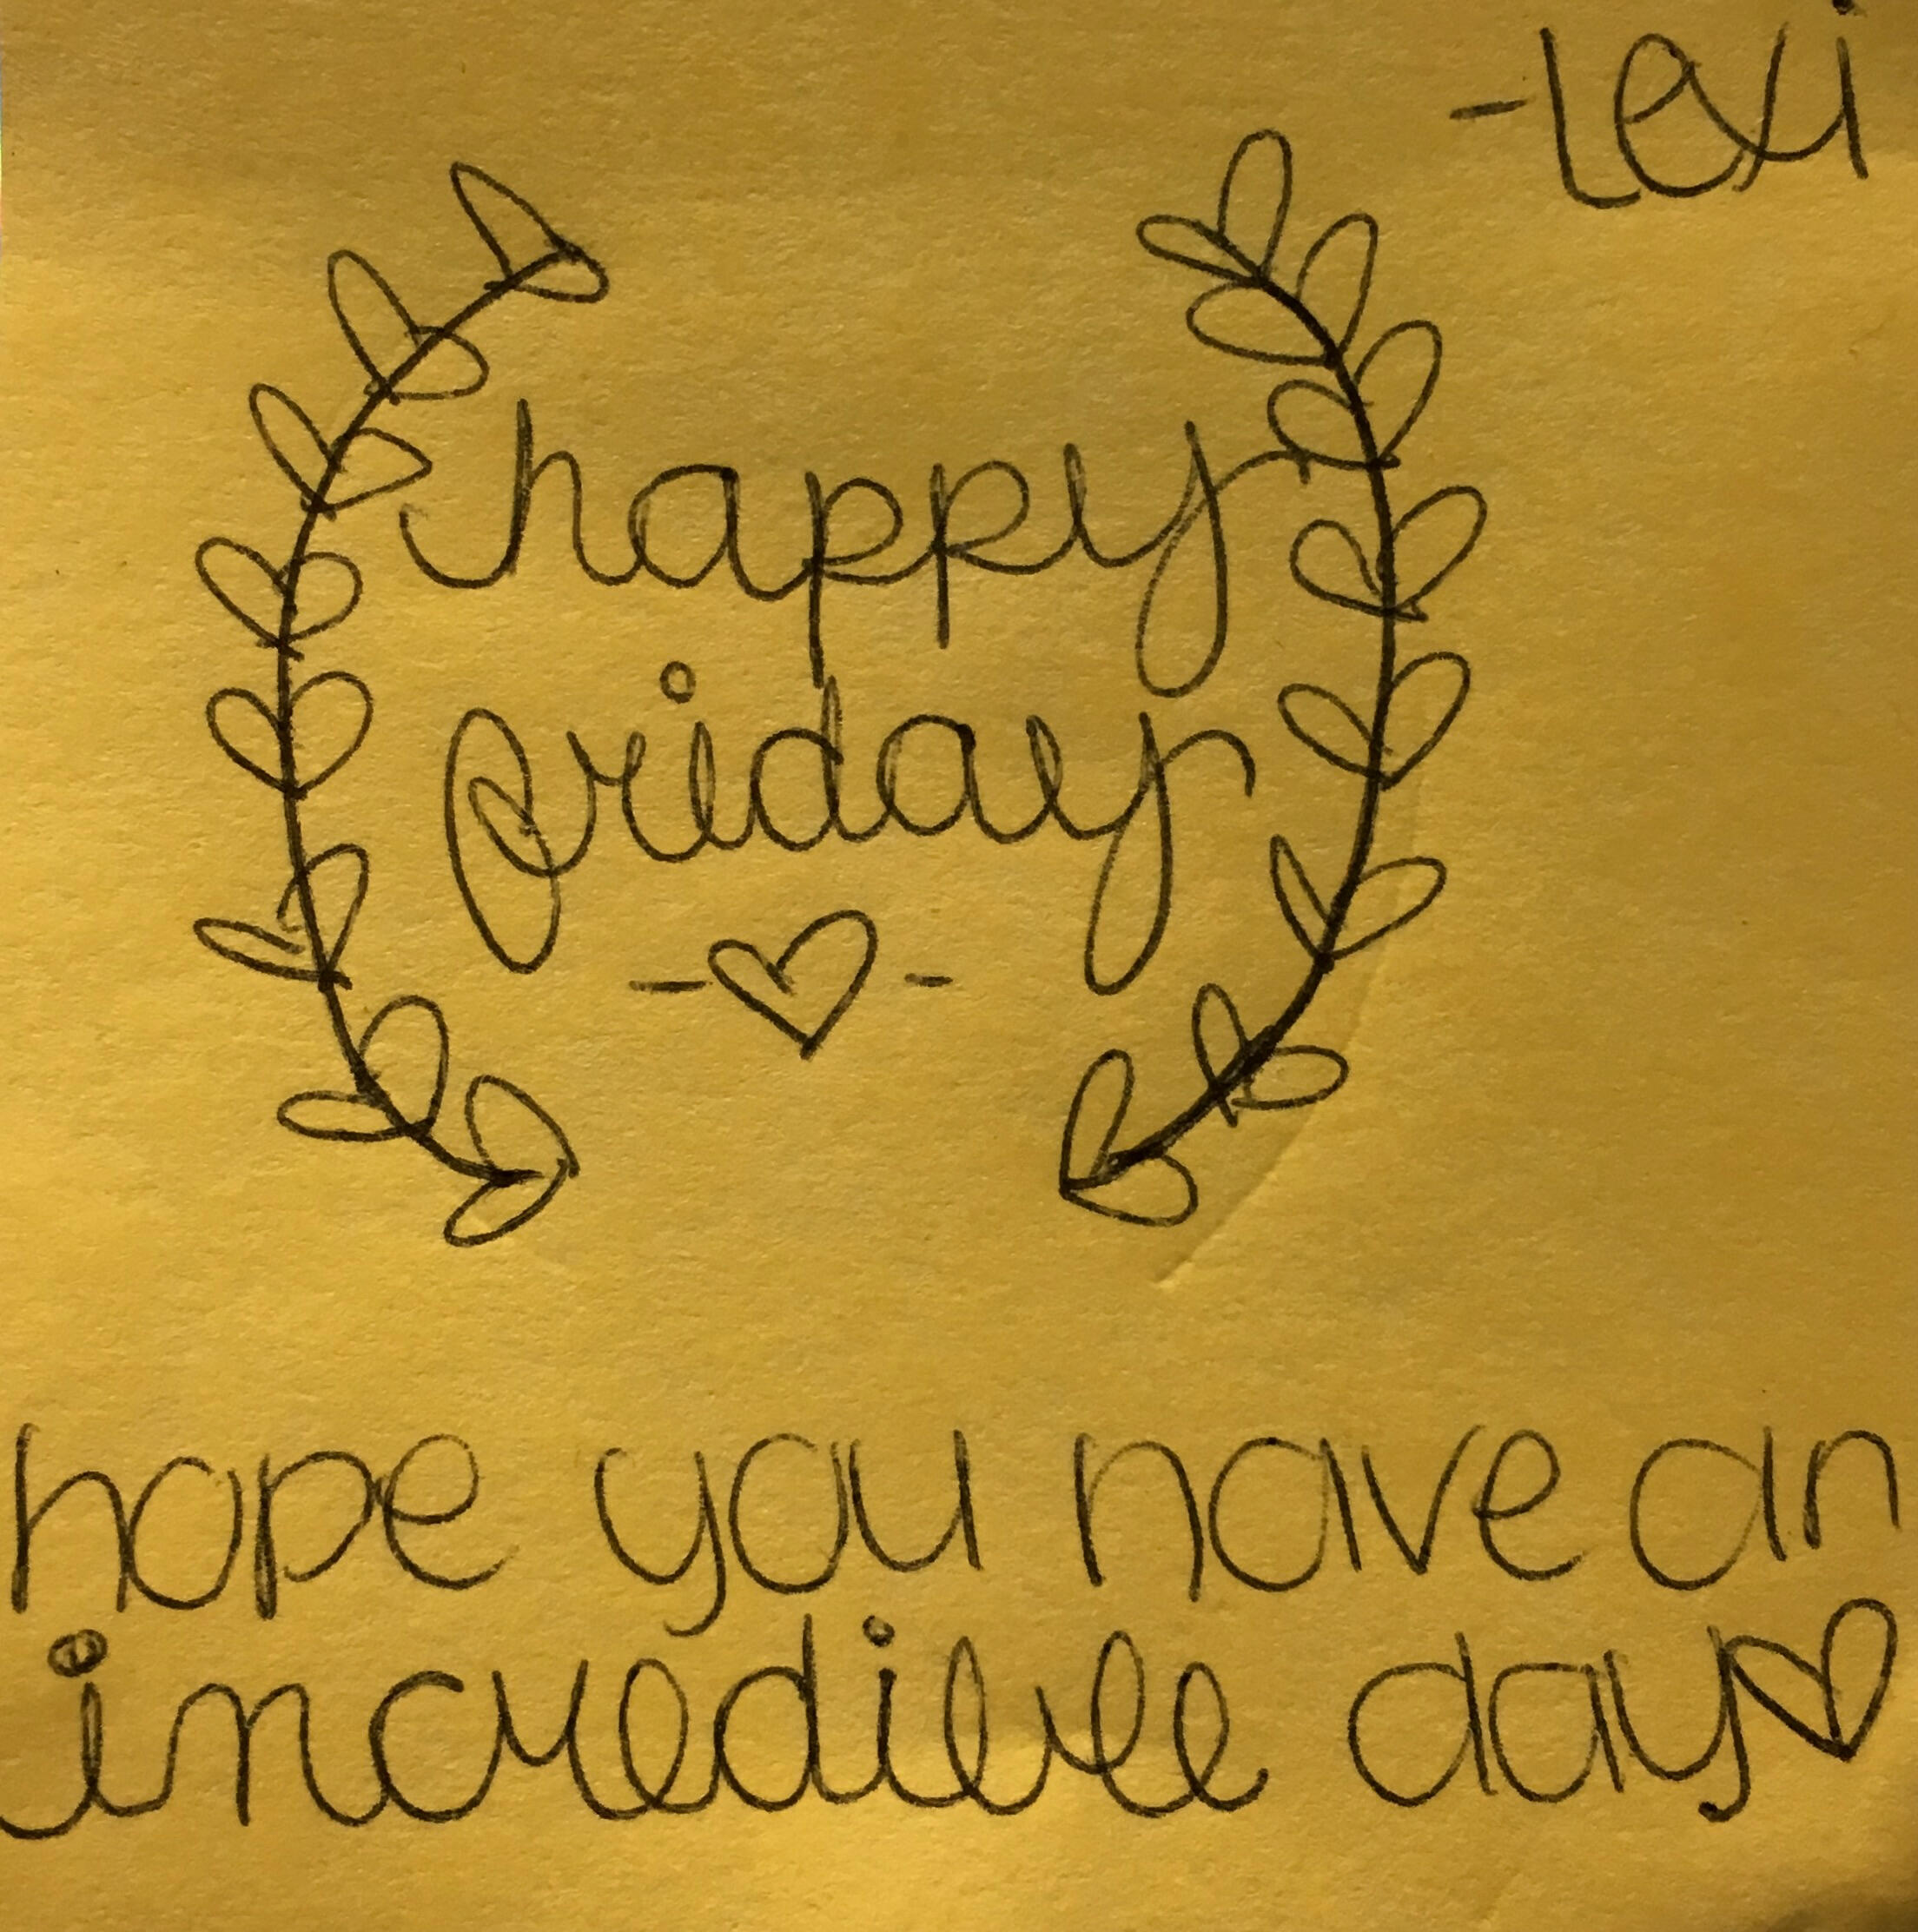 -lexi
happy
friday
-♡-
hope you have an
incredible day♡